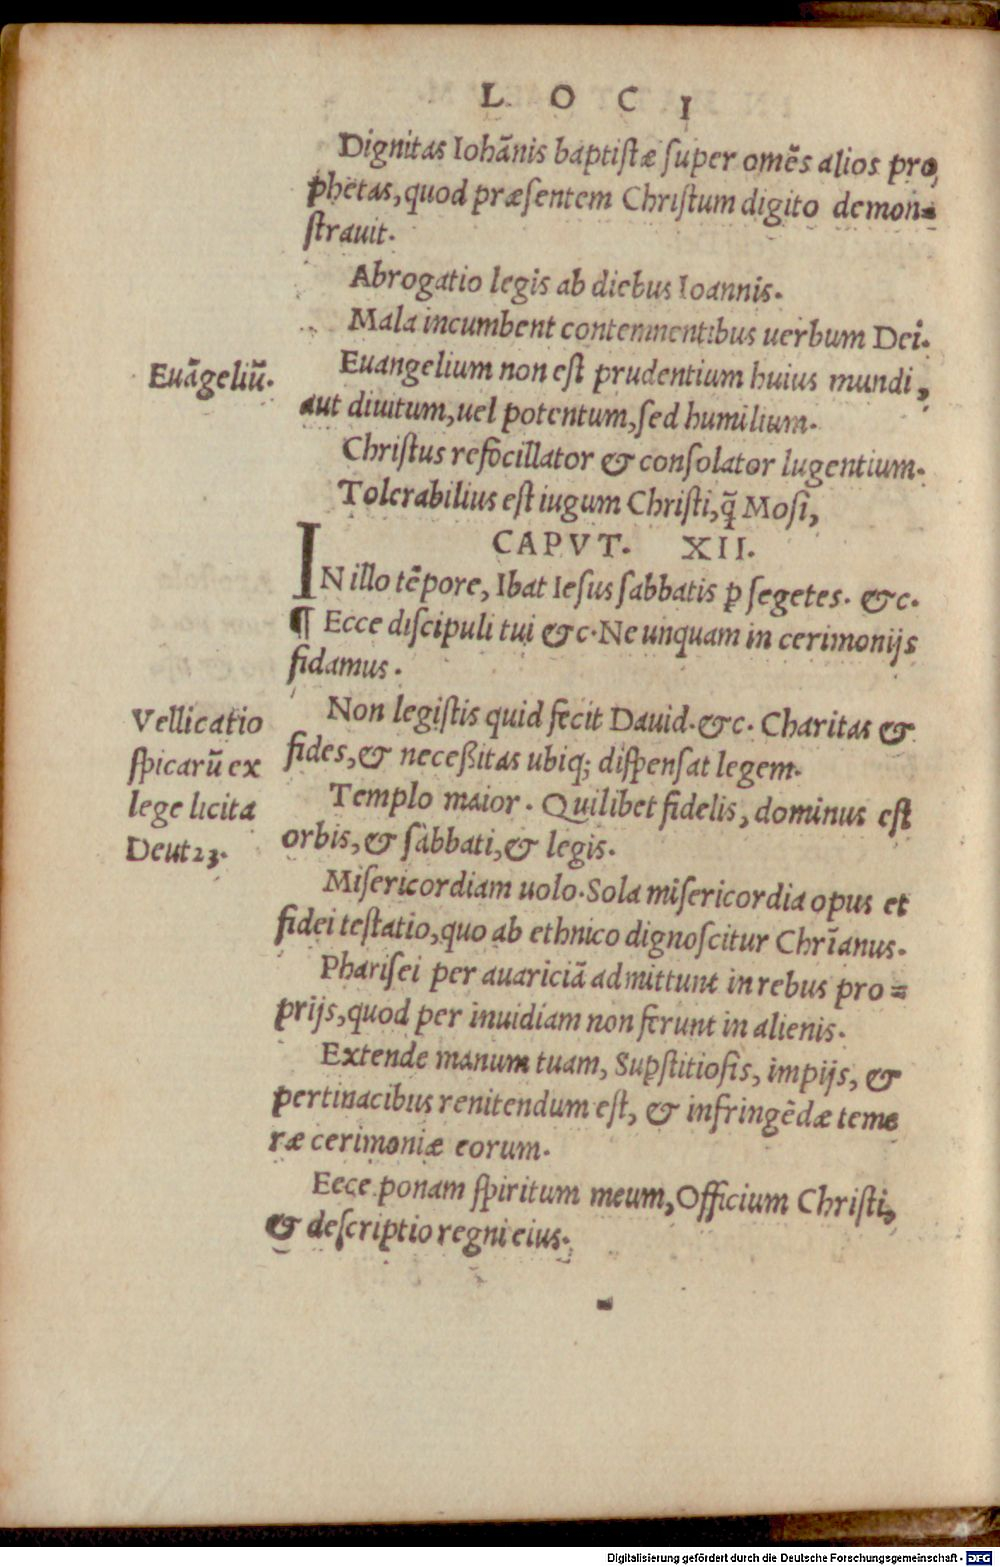 LOCI
Dignitas Iohãnis baptistæ super omẽs alios pro,
phetas, quod præsentem Christum digito demon=
strauit.
Abrogatio legis ab diebus Ioannis.
Mala incumbent contemnentibus uerbum Dei.
Euãgeliũ.
Euangelium non est prudentium huius mundi,
aut diuitum, uel potentum, sed humilium.
Christus refocillator & consolator lugentium.
Tolerabilius est iugum Christi, q̃ Mosi,
CAPVT. XII.
IN illo tẽpore, Ibat Iesus sabbatis ꝑ segetes. &c.
¶ Ecce discipuli tui &c. Ne unquam in cerimonijs
fidamus.
Vellicatio
spicarũ ex
lege licita
Deut 23.
Non legistis quid fecit Dauid. &c. Charitas &
fides, & neceßitas ubiq; dispensat legem.
Templo maior. Quilibet fidelis, dominus est
orbis, & sabbati, & legis.
Misericordiam uolo. Sola misericordia opus et
fidei testatio, quo ab ethnico dignoscitur Chrĩanus.
Pharisei per auariciã admittunt in rebus pro=
prijs, quod per inuidiam non ferunt in alienis.
Extende manum tuam, Suꝑstitiosis, impijs, &
pertinacibus renitendum est, & infringẽdæ teme
ræ cerimoniæ eorum.
Eece ponam spiritum meum, Officium Christi,
& descriptio regni eius.
Digitalisierung gefördert durch die Deutsche Forschungsgemeinschaft - DFG